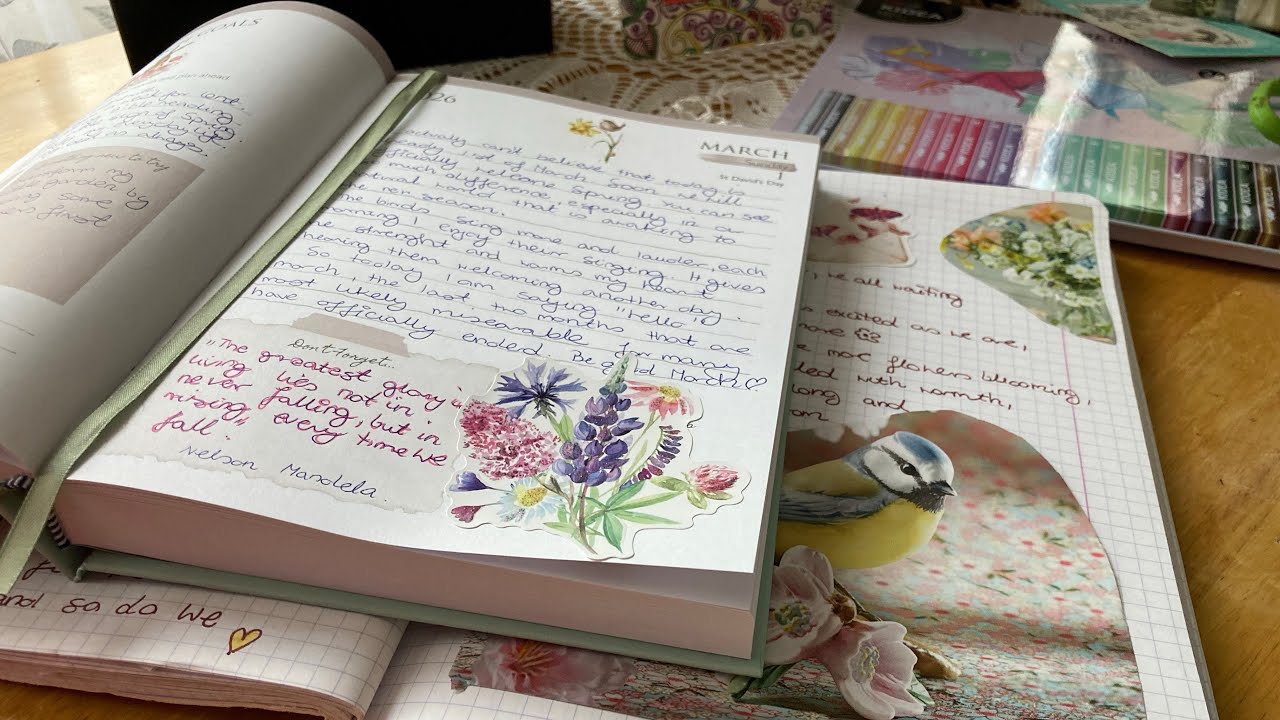 OALS
and plan ahead
for work
reading
sign of Spring
life
as always.
new to try
my
garden by
some
first
26
MARCH
Sunday
1
St David's Day
actually can't believe that today is
1st of March. Soon will
officially welcome Spring. You can see
much difference especially in our
natural world that is awaking to
the new season.
The birds sing more and louder, each
morning I enjoy their singing. It gives
me strenght and warms my heart
hearing them welcoming another day.
So today I am saying "hello"
march, the last two months that are
most likely misearable for many
have officially ended. Be good March ♡
Don't forget..
"The greatest glory in
living lies not in
never falling, but in
rising every time we
fall"
Nelson Mandela.
we all waiting
excited as we are,
more flowers blooming,
with warmth,
long and
and so do we
KIDEA